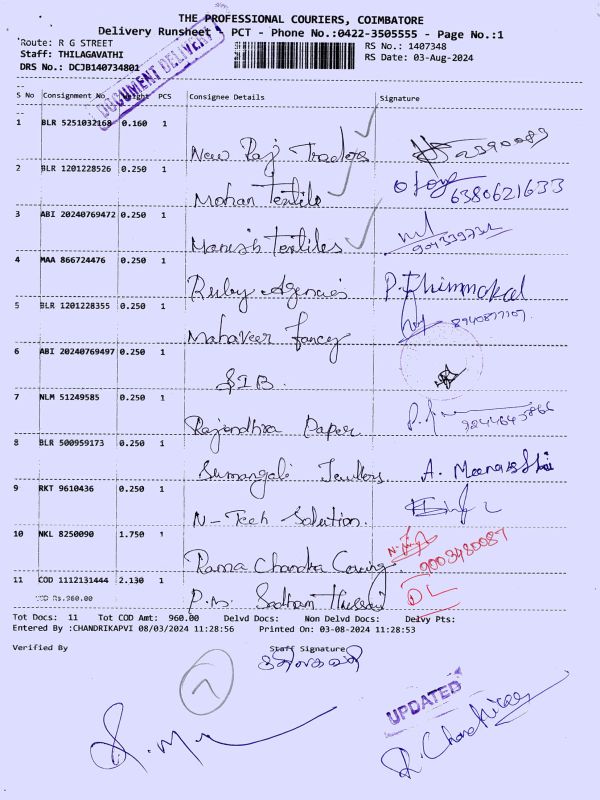 THE PROFESSIONAL COURIERS, COIMBATORE
Delivery Runsheet PCT - Phone No.:0422-3505555 - Page No.:1
Route: R G STREET RS No.: 1407348
Staff: THILAGAVATHI RS Date: 03-Aug-2024
DRS No.: DCJB140734801
DOCUMENT DELIVERY
S No Consignment No. Weight PCS Consignee Details Signature
1 BLR 5251032168 0.160 1
New Raj Traders
2 BLR 1201228526 0.250 1
Mohan Textile 6380621633
3 ABI 20240769472 0.250 1
Manish Textiles
4 MAA 866724476 0.250 1
Ruby Agencies
5 BLR 1201228355 0.250 1
Mahaveer fancy
6 ABI 20240769497 0.250 1
SIB.
7 NLM 51249585 0.250 1
Rajendhra Paper
8 BLR 500959173 0.250 1
Sumangali Jewllers A. Meenakshi
9 RKT 9610436 0.250 1
N-Tech Solution.
10 NKL 8250090 1.750 1
Rama Chandra 9003480087
11 COD 1112131444 2.130 1
COD Rs.960.00
P.M. Saddham Hussain DL
Tot Docs: 11 Tot COD Amt: 960.00 Delvd Docs: Non Delvd Docs: Delvy Pts:
Entered By :CHANDRIKAPVI 08/03/2024 11:28:56 Printed On: 03-08-2024 11:28:53
Verified By Staff Signature
7
UPDATED
R. Chandrika